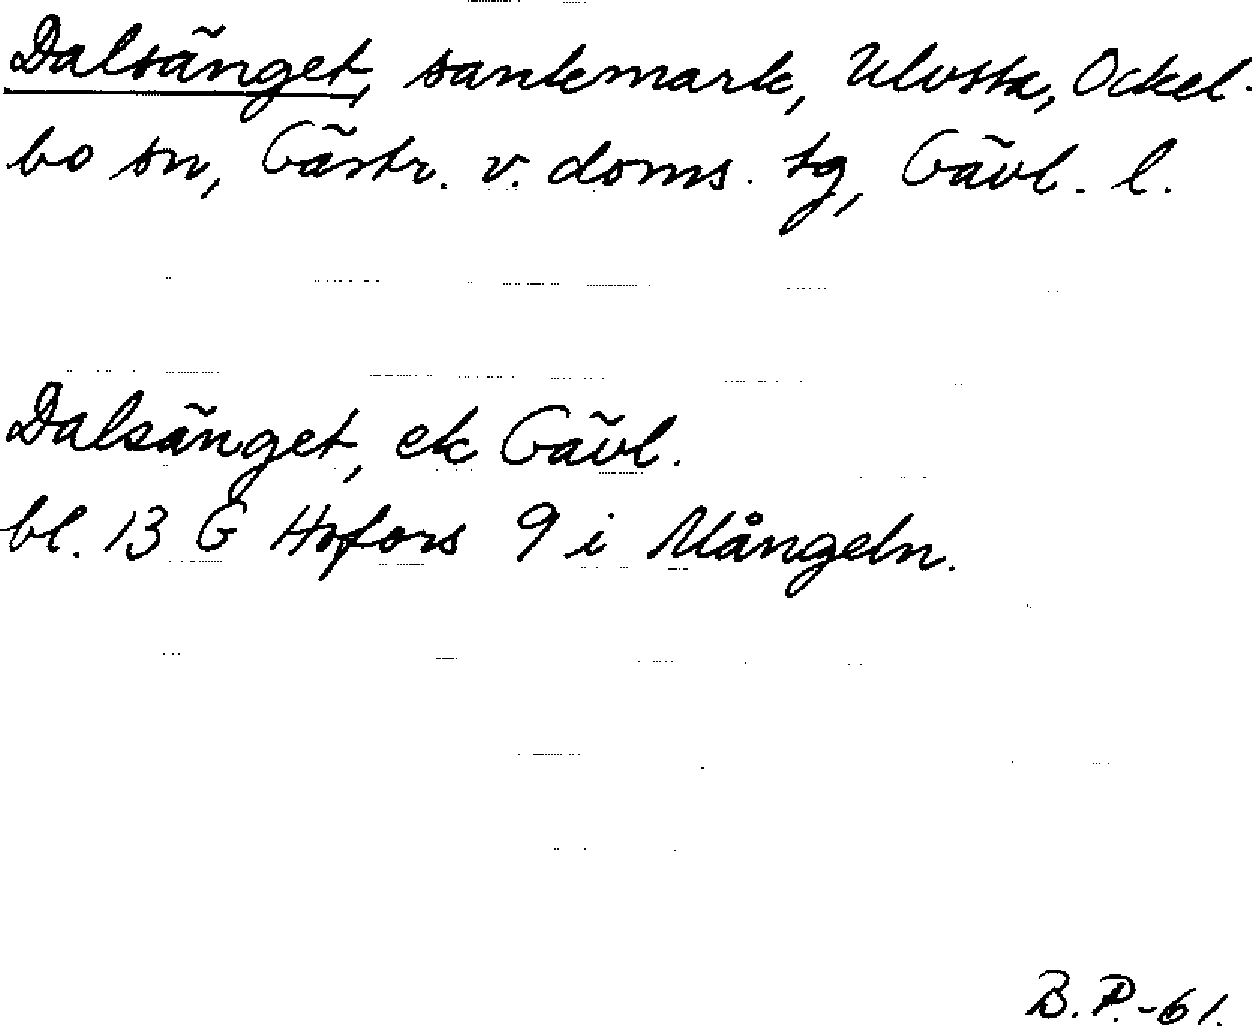 Dalsänget, sankmark, Ulvsta, Ockel-
bo sn, Gästr. v. doms. tg, Gävl. l.
Dalsänget, ek Gävl.
bl. 13 G Hofors 9 i Mångeln.
B.P.-61.